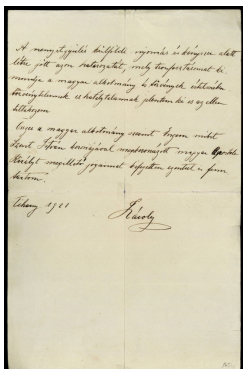 A nemzetgyűlés külföldi nyomás és kényszer alatt
létre jött azon határozatát, mely trónfosztásomat ki
mondja a magyar alkotmány és törvények értelmében
törvénytelennek és hatálytalannak jelentem ki és az ellen
tiltakozom.
a magyar alkotmány szerint engem mint
Szent István koronájával megkoronázott magyar Apostoli
Királyt megillető jogaimat továbbra is fenn
tartom.
Tihany 1921
Károly